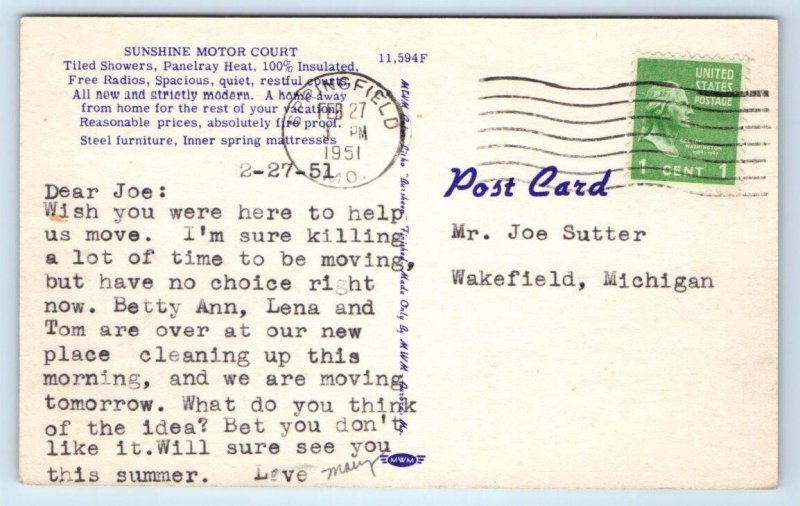 SUNSHINE MOTOR COURT
Tiled Showers, Panelray Heat, 100% Insulated,
Free Radios, Spacious, quiet, restful courts.
All new and strictly modern. A home away
from home for the rest of your vacation.
Reasonable prices, absolutely fire proof.
Steel furniture, Inner spring mattresses
11,594F
SPRINGFIELD
FEB 27
PM
1951
MO.
UNITED
STATES
POSTAGE
WASHINGTON
1 CENT 1
2-27-51
Dear Joe:
Wish you were here to help
us move. I'm sure killing
a lot of time to be moving,
but have no choice right
now. Betty Ann, Lena and
Tom are over at our new
place cleaning up this
morning, and we are moving
tomorrow. What do you think
of the idea? Bet you don't
like it.Will sure see you
this summer. Love Mary
MWM Color-Litho "Durheen" Finished Made Only By MWM, Aurora, Mo.
MWM
Post Card
Mr. Joe Sutter
Wakefield, Michigan